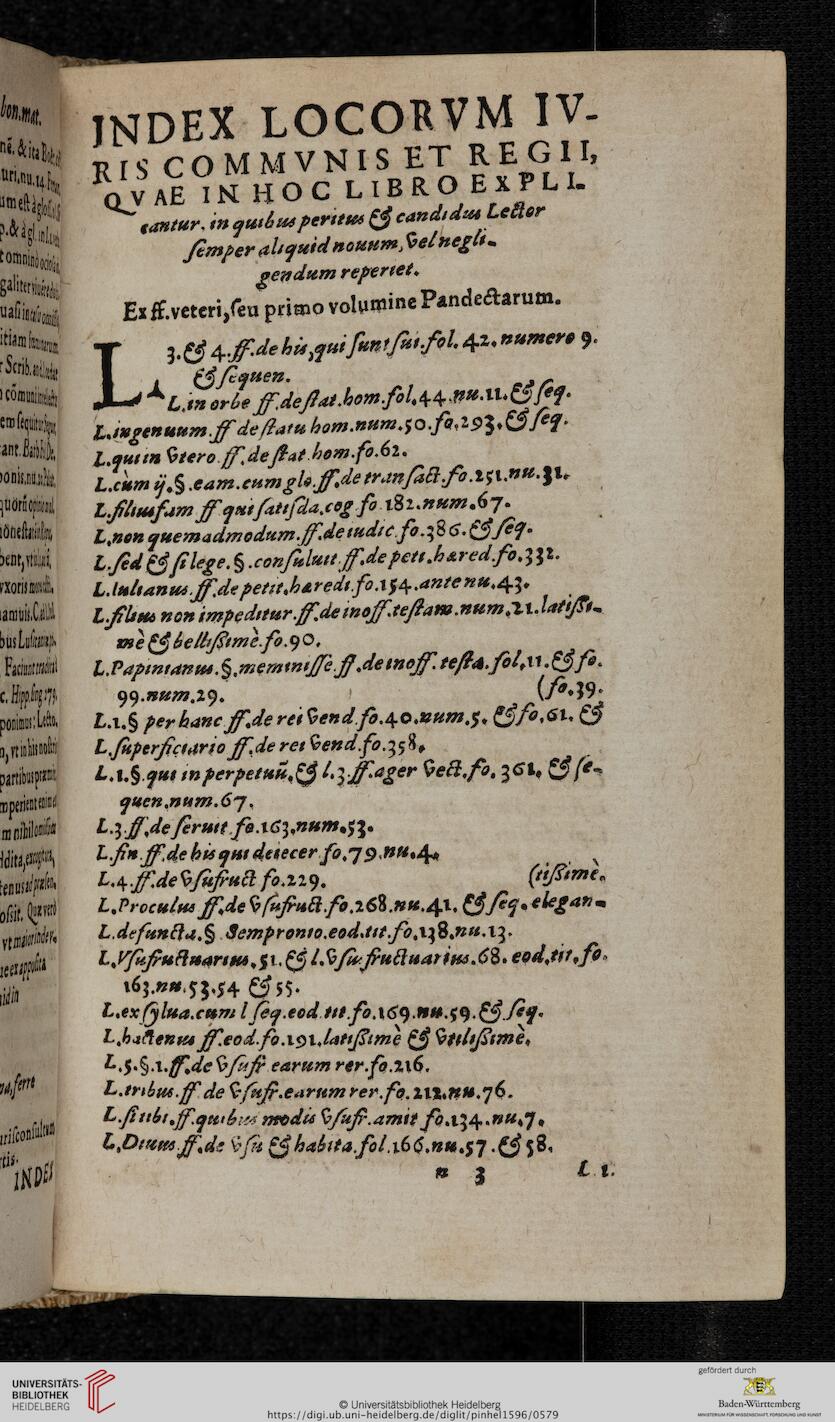 INDEX LOCORVM IV-
RIS COMMVNIS ET REGII,
QVAE IN HOC LIBRO EXPLI-
cantur, in quibus peritus & candidus Lector
semper aliquid nouum, vel negli-
gendum reperiet.
Ex ff. veteri, seu primo volumine Pandectarum.
L 3. & 4. ff. de his, qui sunt sui. fol. 42. numero 9.
& sequen.
L. in orbe ff. de stat. hom. fol. 44. nu. 11. & seq.
L. ingenuum. ff de statu hom. num. 50. fo. 293. & seq.
L. qui in vtero. ff. de stat. hom. fo. 62.
L. cùm ij. §. eam. cum glo. ff. de transact. fo. 251. nu. 31.
L. filiusfam ff qui satisda. cog fo 182. num. 67.
L. non quemadmodum. ff. de iudic fo. 386. & seq.
L. sed & si lege. §. consuluit ff. de peti. hæred. fo. 332.
L. Iulianus. ff. de petit. hæredi. fo. 154. ante nu. 43.
L. filius non impeditur. ff. de inoff. testam. num. 21. latissi-
mè & bellissimè. fo. 90.
L. Papinianus. §. meminisse. ff. de inoff. testa. fol. 11. & fo.
99. num. 29. (fo. 39.
L. 1. § per hanc ff. de rei vend. fo. 40. num. 5. & fo. 61. &
L. superficiario ff. de rei vend. fo. 358.
L. 1. §. qui in perpetuũ. & l. 3. ff. ager vect. fo. 361. & se-
quen. num. 67.
L. 3. ff. de seruit. fo. 163. num. 53.
L. fin. ff. de his qui deiecer. fo. 79. nu. 4.
L. 4. ff. de vsufruct fo. 229. (tissimè.
L. Proculus ff. de vsufruct. fo. 268. nu. 41. & seq. elegan-
L. defuncta. § Sempronio. eod. tit. fo. 138. nu. 13.
L. Vsufructuarius. 51. & l. vsufructuarius. 68. eod. tit. fo.
163. nu. 53. 54 & 55.
L. ex sylua. cum l seq. eod tit. fo. 169. nu. 59. & seq.
L. hactenus ff. eod. fo. 191. latissimè & vtilissimè.
L. 5. §. 1. ff. de vsufr earum rer. fo. 216.
L. tribus. ff de vsufr. earum rer. fo. 212. nu. 76.
L. si tibi. ff. quibus modis vsufr. amit fo. 134. nu. 7.
L. Diuus. ff. de vsu & habita. fol. 166. nu. 57. & 58.
n 3 L 1.
INDEX
UNIVERSITÄTS-
BIBLIOTHEK
HEIDELBERG
© Universitätsbibliothek Heidelberg
https://digi.ub.uni-heidelberg.de/diglit/pinhel1596/0579
gefördert durch
Baden-Württemberg
MINISTERIUM FÜR WISSENSCHAFT, FORSCHUNG UND KUNST